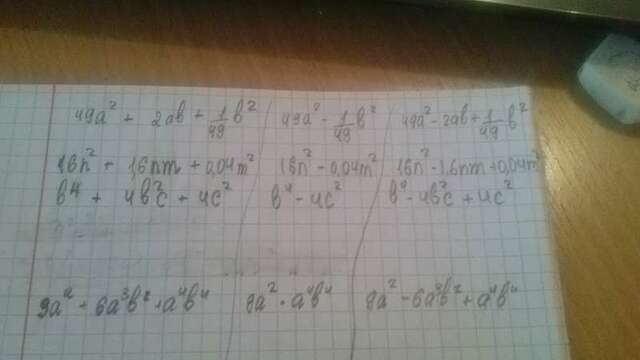 49a² + 2ab + 1/49 b² 49a² - 1/49 b² 49a² - 2ab + 1/49 b²
16n² + 1,6nm + 0,04m² 16n² - 0,04m² 16n² - 1,6nm + 0,04m²
b⁴ + 4b²c + 4c² b⁴ - 4c² b⁴ - 4b²c + 4c²
9a² + 6a³b² + a⁴b⁴ 9a² - a⁴b⁴ 9a² - 6a³b² + a⁴b⁴